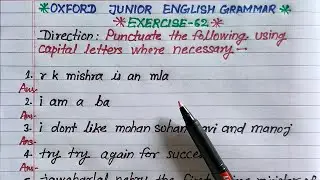 *OXFORD JUNIOR ENGLISH GRAMMAR*
*EXERCISE-62*
Direction: Punctuate the following using
capital letters where necessary-
1. r k mishra is an mla
Ans-
2. i am a ba
Ans-
3. i dont like mohan sohan and manoj
Ans-
4. try try again for
Ans-
5.